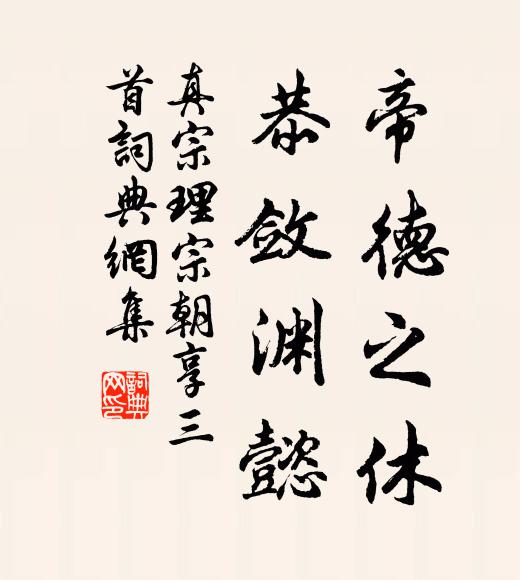 帝德之休
恭敛渊懿
真宗理宗朝享三
首詞典網集
詞典
网印